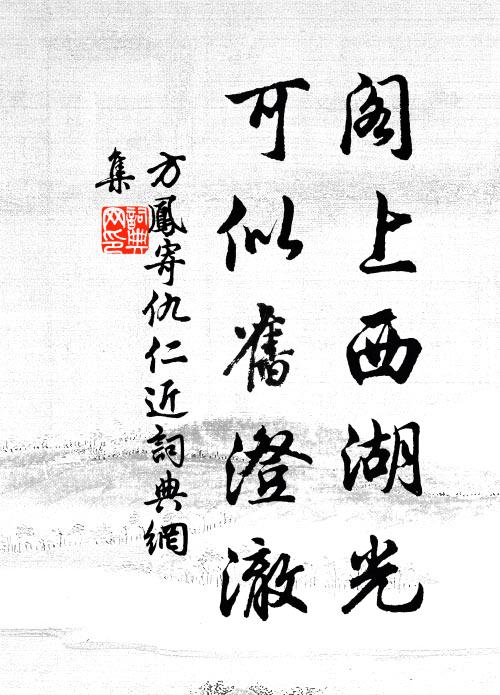 閣上西湖光
可似舊澄澈
方鳳寄仇仁近詞典網
集
詞典網印